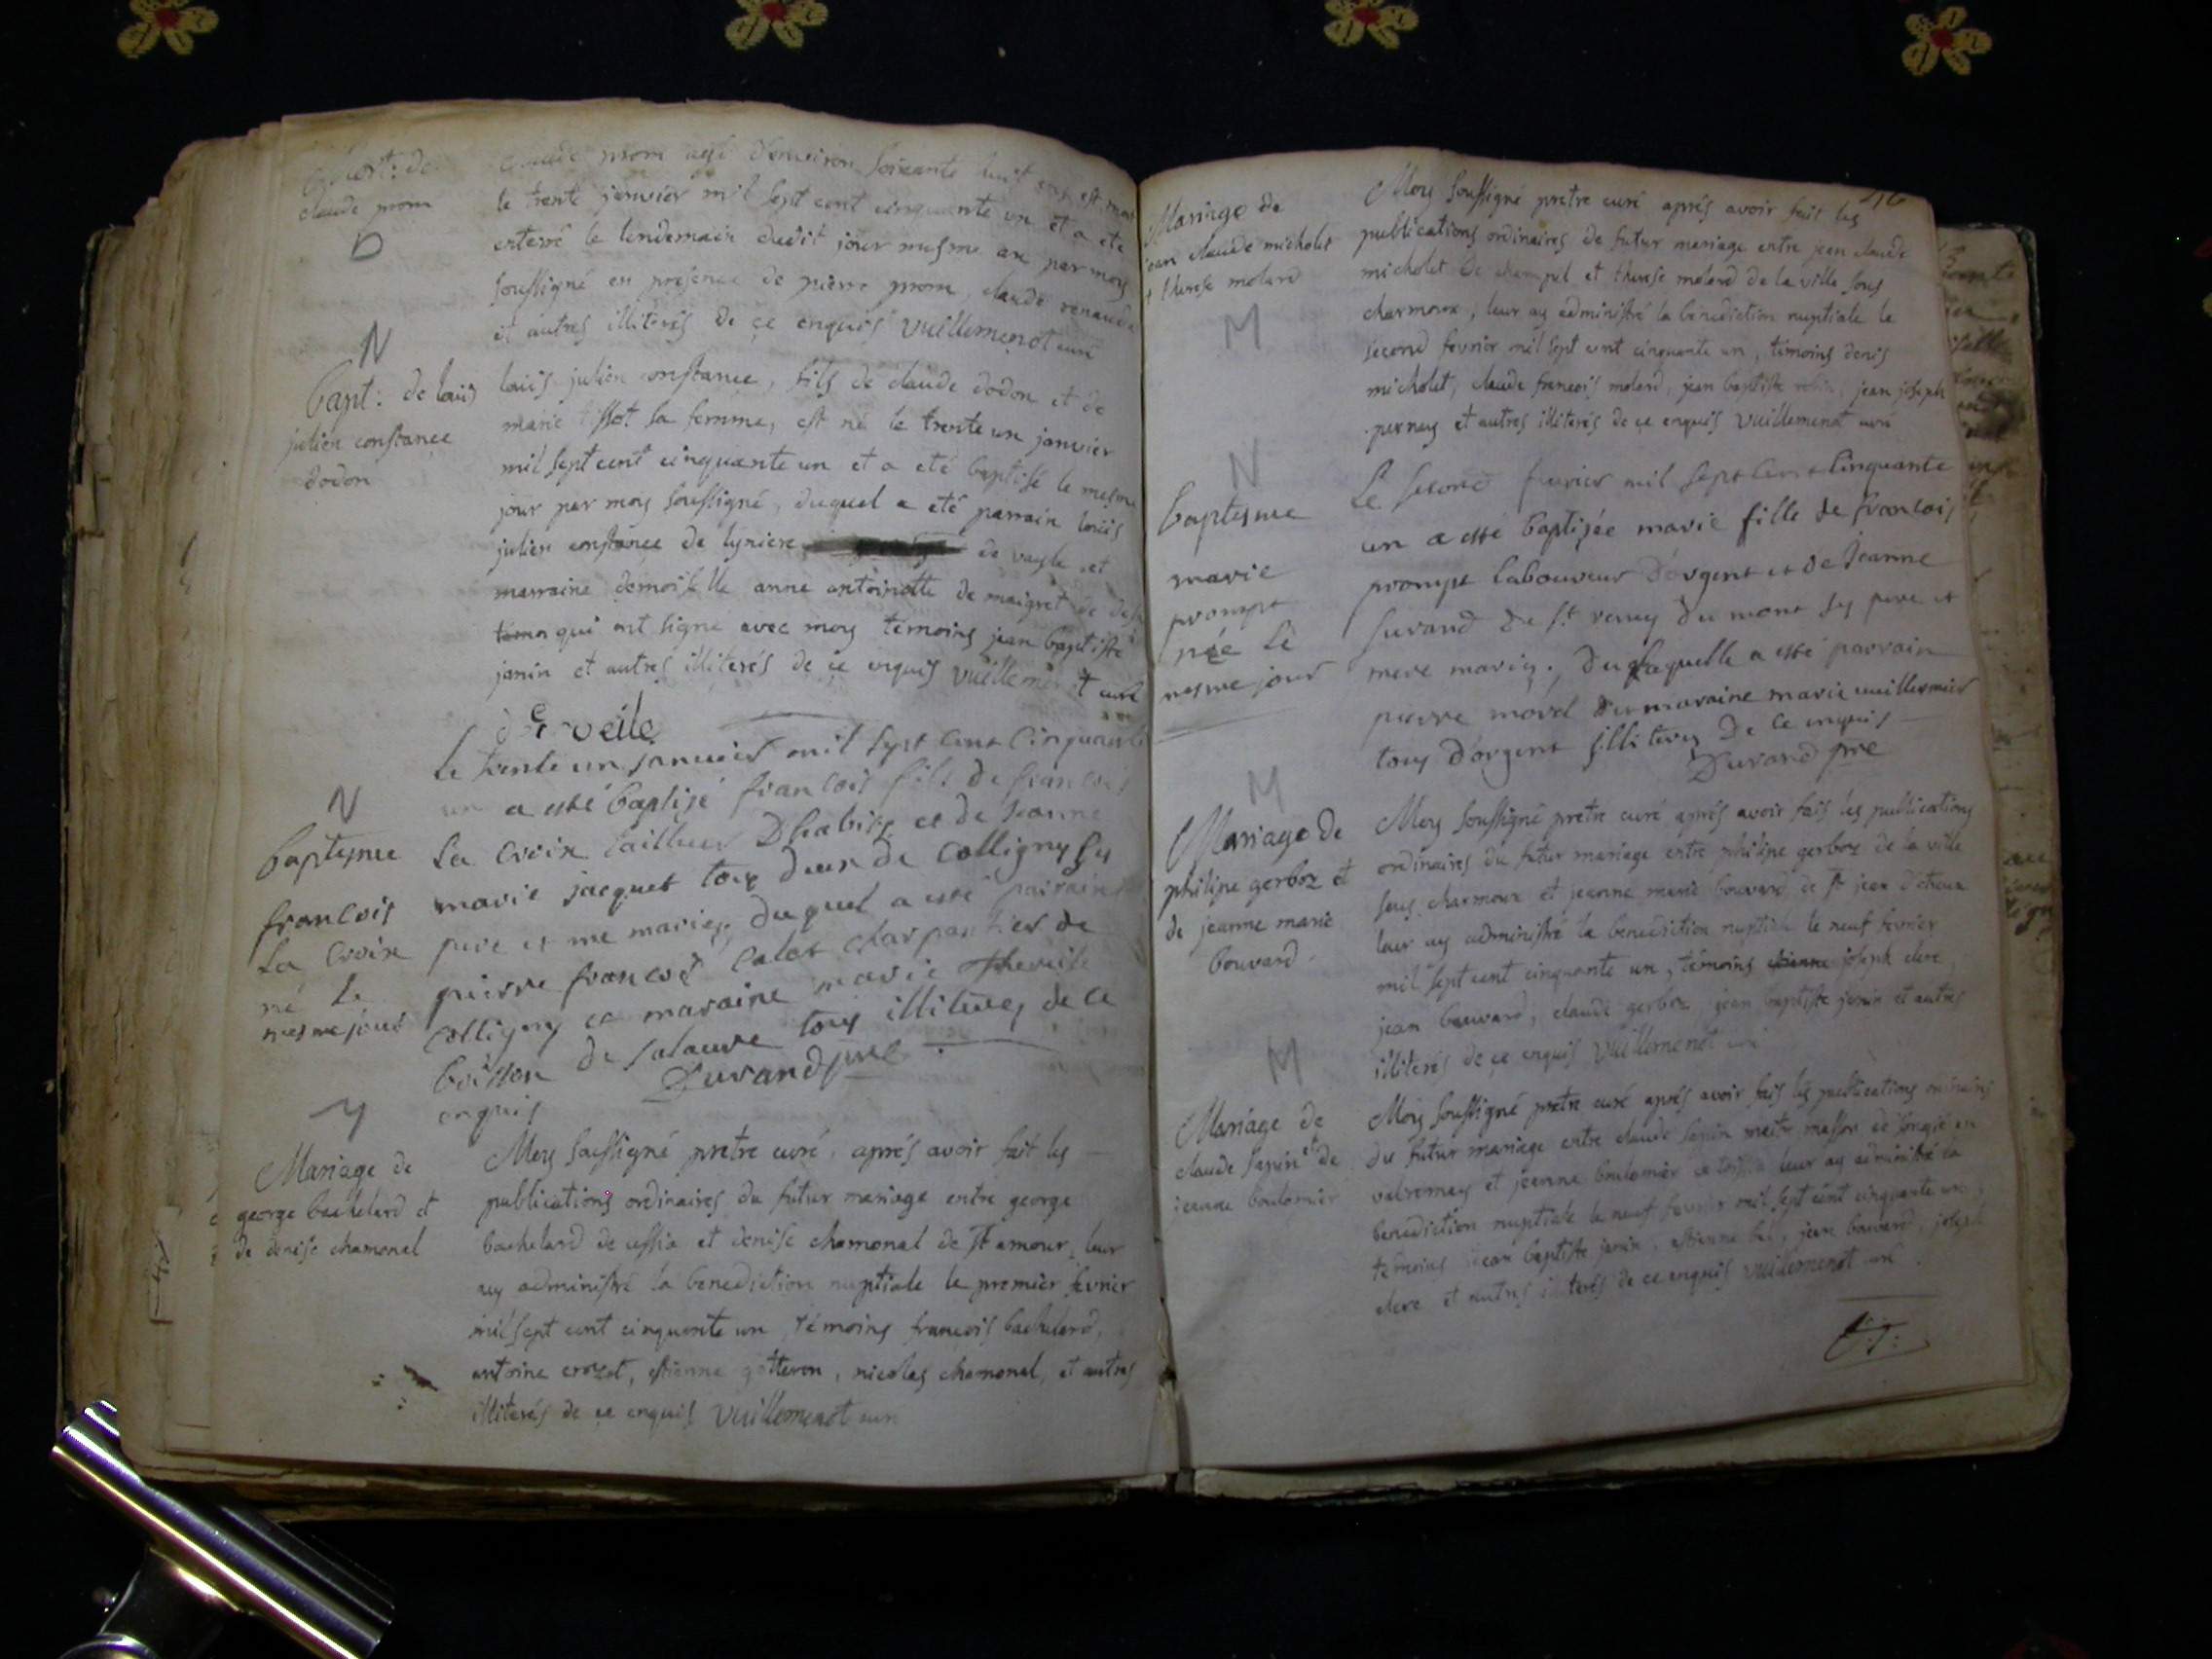 claude prom
D
claude prom agé d'environ soixante huit ans est mort
le trente janvier mil sept cent cinquante un et a eté
enterré le lendemain dudit jour mesme an par moy
soussigné en presence de pierre prom, claude renaud
et autres illiterés de ce enquis vuillemenot curé
N
bapt: de louis
julien constance
dodon
louis julien constance, fils de claude dodon et de
marie tissot sa femme, est né le trente un janvier
mil sept cent cinquante un et a eté baptisé le mesme
jour par moy soussigné, duquel a eté parrain louis
julien constance de lyniere de vaugle et
marraine demoiselle anne antoinette de maigret de
qui ont signé avec moy temoins jean baptiste
janin et autres illiterés de ce enquis vuillemenot curé
derveile
N
baptesme
francois
La croix
né le
mesme jour
le trente un janvier mil sept cent cinquante
un a esté baptizé francois fils de francois
La croix tailleur Dhabits et de Jeanne
marie jacquet tous deux de colligny sy
pere et me mariez, duquel a esté parrain
pierre francois calot charpantier de
colligny et maraine marie
boisson de salauvre tous illiterez de ce
enquis Durand pre
M
Mariage de
george bachelard et
de denise chamonal
Moy soussigné pretre curé, aprés avoir fait les
publications ordinaires du futur mariage entre george
bachelard de cessia et denise chamonal de St amour, leur
ay administré la benediction nuptiale le premier fevrier
mil sept cent cinquante un, temoins francois bachelard,
antoine crozet, etienne gotteron, nicolas chamonal, et autres
illiterés de ce enquis vuillemenot curé
46
Mariage de
jean claude micholet
et therese molard
M
Moy soussigné pretre curé aprés avoir fait les
publications ordinaires de futur mariage entre jean claude
micholet de et therese molard de la ville sous
charmoux, leur ay administré la benediction nuptiale le
second fevrier mil sept cent cinquante un, témoins denis
micholet, claude francois molard, jean baptiste robin, jean joseph
perney et autres illiterés de ce enquis vuillemenot curé
N
baptesme
marie
prompt
née le
mesme jour
Le second fevrier mil sept cent cinquante
un a esté baptizée marie fille de francois
prompt laboureur d'orgent et de Jeanne
Surand de st remy du mont sy pere et
mere mariez, du laquelle a esté parrain
pierre morel et maraine marie vuillermier
tous d'orgent illiterez de ce enquis
Durand pre
M
Mariage de
philipe gerboz et
de jeanne marie
bouvard.
Moy soussigné pretre curé aprés avoir fais les publications
ordinaires du futur mariage entre philipe gerboz de la ville
sous charmoux et jeanne marie bouvard de St jean d'etreux
leur ay administré la benediction nuptiale le neuf fevrier
mil sept cent cinquante un, témoins etienne joseph clere
jean bouvard, claude gerboz, jean baptiste janin et autres
illiterés de ce enquis vuillemenot curé
M
Mariage de
claude sapin et de
jeanne boulomier
Moy soussigné pretre curé aprés avoir fais les publications ordinaires
du futur mariage entre claude sapin maitre masson de songié en
valromey et jeanne boulomier leur ay administré la
benediction nuptiale le neuf fevrier mil sept cent cinquante un,
témoins jean baptiste janin, etienne bel, jean bouvard, joseph
clere et autres illiterés de ce enquis vuillemenot curé